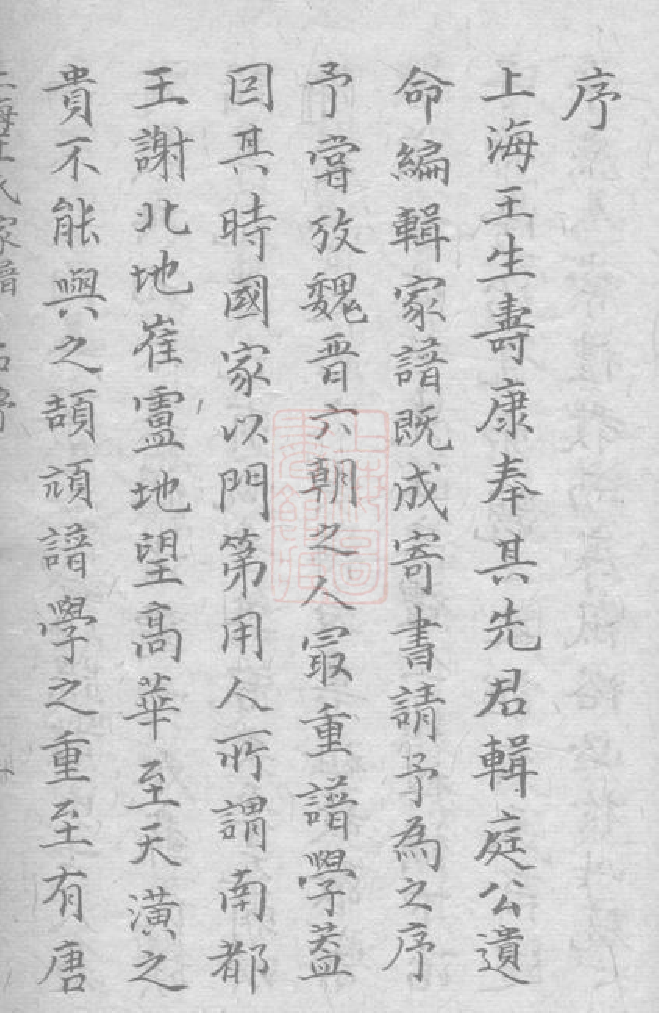 序
上海王生壽康奉其先君輯庭公遺
命編輯家譜既成寄書請予為之序
予嘗攷魏晉六朝之人冣重譜學蓋
因其時國家以門第用人所謂南都
王謝北地崔盧地望高華至天潢之
貴不能與之頡頏譜學之重至有唐
上海王氏家譜 序